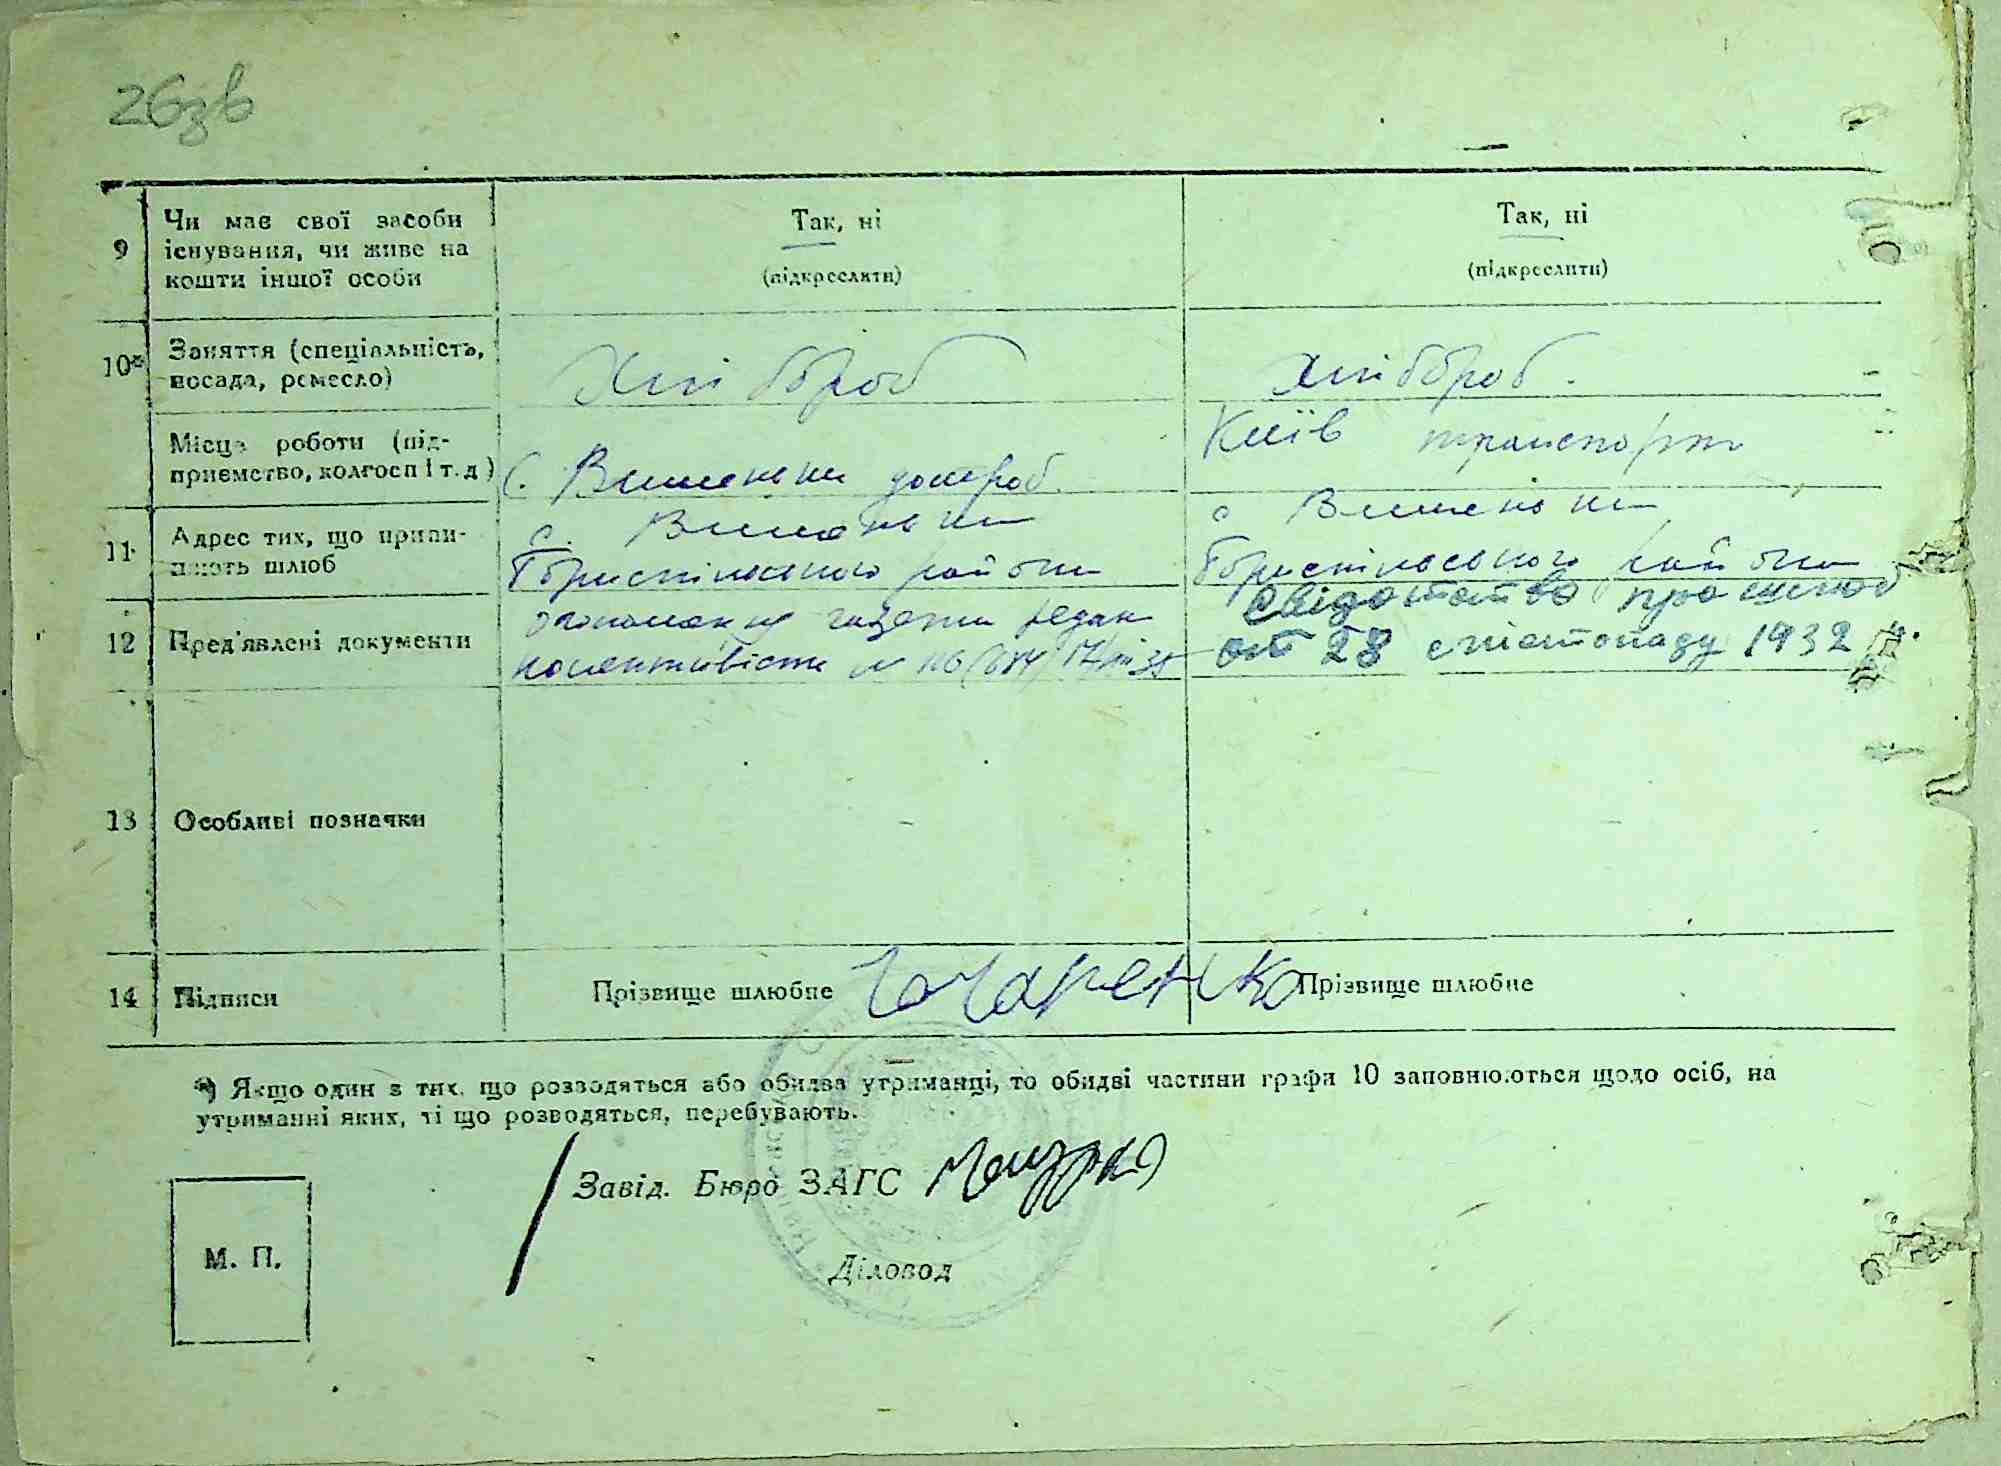 26зв
9 Чи має свої засоби існування, чи живе на кошти іншої особи
Так, ні
(підкреслити)
Так, ні
(підкреслити)
10* Заняття (спеціальність, посада, ремесло)
Хлібороб
Хлібороб.
Місце роботи (підприємство, колгосп і т. д)
с. Вишеньки
Київ транспорт
11 Адрес тих, що припиняють шлюб
с. Вишеньки
Бориспільського району
с Вишеньки
Бориспільського району
12 Пред'явлені документи
оголошення газети редак
колективіст № 116
свідотство про шлюб
от 28 листопаду 1932 р.
13 Особливі позначки
14 Підписи
Прізвище шлюбне Гочаренко
Прізвище шлюбне
*) Якщо один з тих, що розводяться або обидва утриманці, то обидві частини графи 10 заповнюються щодо осіб, на
утриманні яких, ті що розводяться, перебувають.
Завід. Бюро ЗАГС
М. П.
Діловод